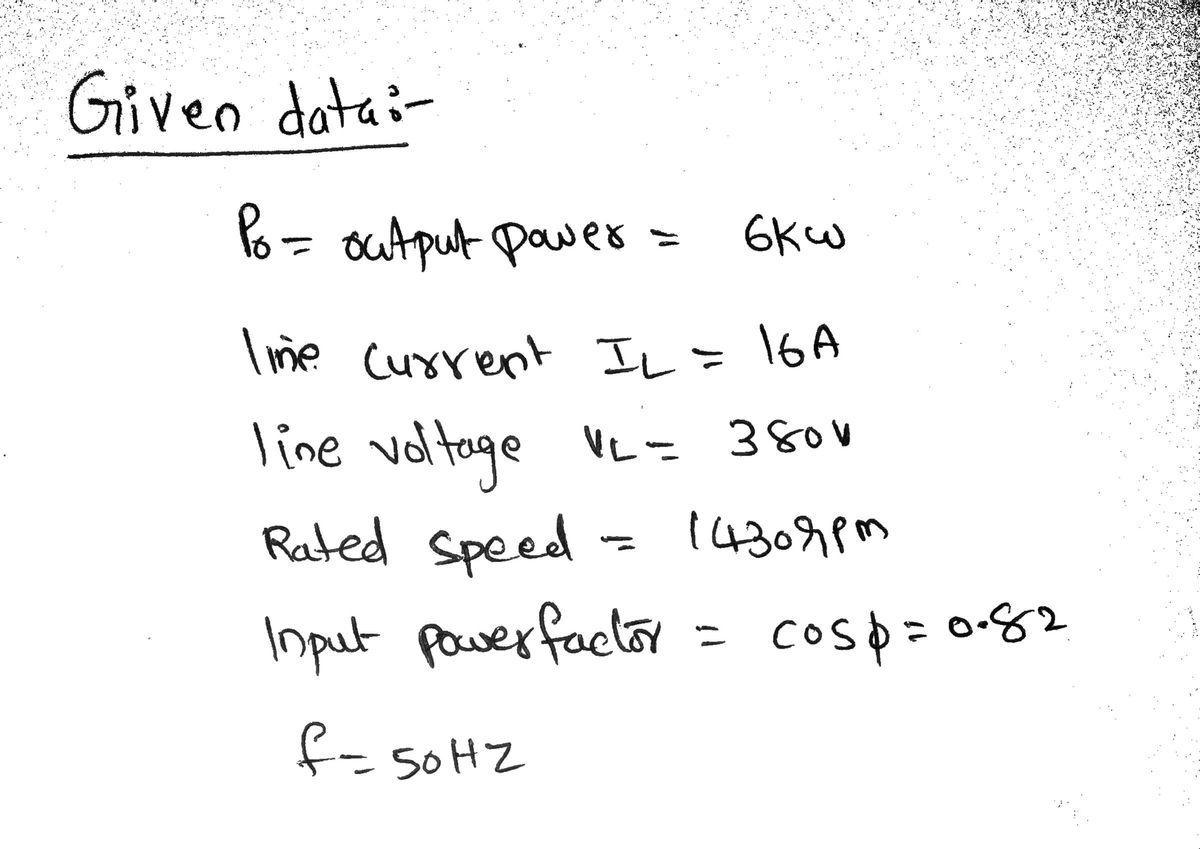 Given data:-
Po = output power = 6kw
line current IL = 16A
line voltage VL = 380V
Rated speed = 1430rpm
Input power factor = cosϕ = 0.82
f = 50HZ